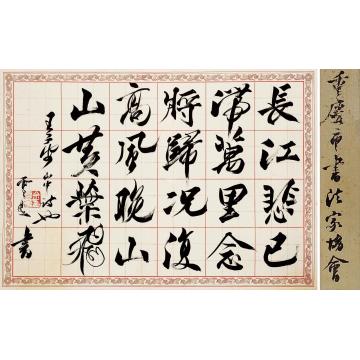 重慶市書法家協會
長江悲已
滯萬里念
將歸況復
高風晚山
山黃葉飛
王勃山中
書